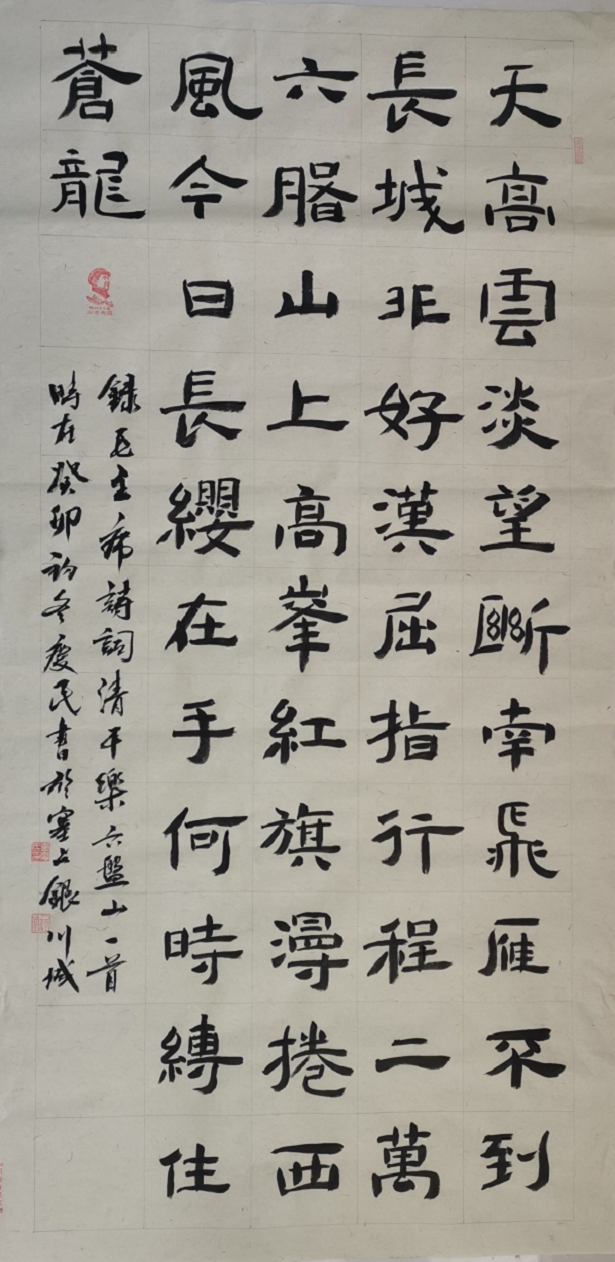 天高雲淡望斷南飛雁不到
長城非好漢屈指行程二萬
六山上高峯紅旗漫捲西
風今日長纓在手何時縛住
蒼龍
錄毛主席詩詞清平樂六盤山一首
時在癸卯初冬慶民書於塞上銀川城